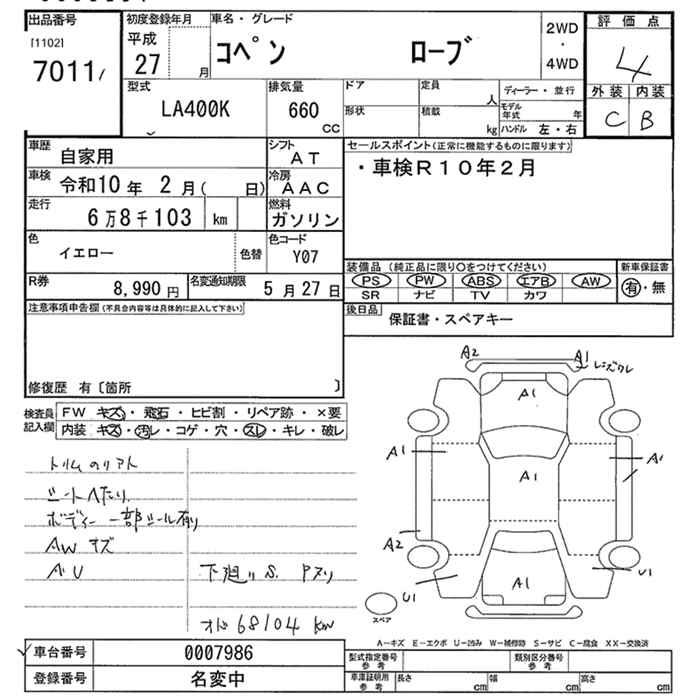 出品番号
[1102]
7011/
初度登録年月
平成
27 月
車名・グレード
コペン ローブ
2WD
・
4WD
評価点
4
外装 内装
C B
型式
LA400K
排気量
660
CC
ドア
定員
人
形状
積載
kg
ディーラー・並行
モデル年式 年
ハンドル 左・右
車歴
自家用
シフト
AT
セールスポイント(正常に機能するものに限ります)
・車検R10年2月
車検
令和10年 2月( 日)
冷房
AAC
走行
6万8千103 km
燃料
ガソリン
色
イエロー
色替
色コード
Y07
R券
8,990 円
名変通知期限
5月27日
装備品(純正品に限り○をつけてください)
PS PW ABS エアB AW
SR ナビ TV カワ
新車保証書
有・無
後日品
保証書・スペアキー
注意事項申告欄(不具合内容等は具体的に記入して下さい)
修復歴 有〔箇所 〕
検査員記入欄
FW キズ・飛石・ヒビ割・リペア跡・×要
内装 キズ・汚レ・コゲ・穴・スレ・キレ・破レ
シートへたり
ボディー一部シール有り
AWキズ
下廻りS. Pヌリ
オド68104 km
A2
A1
A1
A1
A1
A1
A2
A1
U1
U1
スペア
A-キズ E-エクボ U-凹み W-補修跡 S-サビ C-腐食 XX-交換済
車台番号
0007986
登録番号
名変中
型式指定番号
参考
類別区分番号
参考
車庫証明用
参考
長さ cm
幅 cm
高さ cm